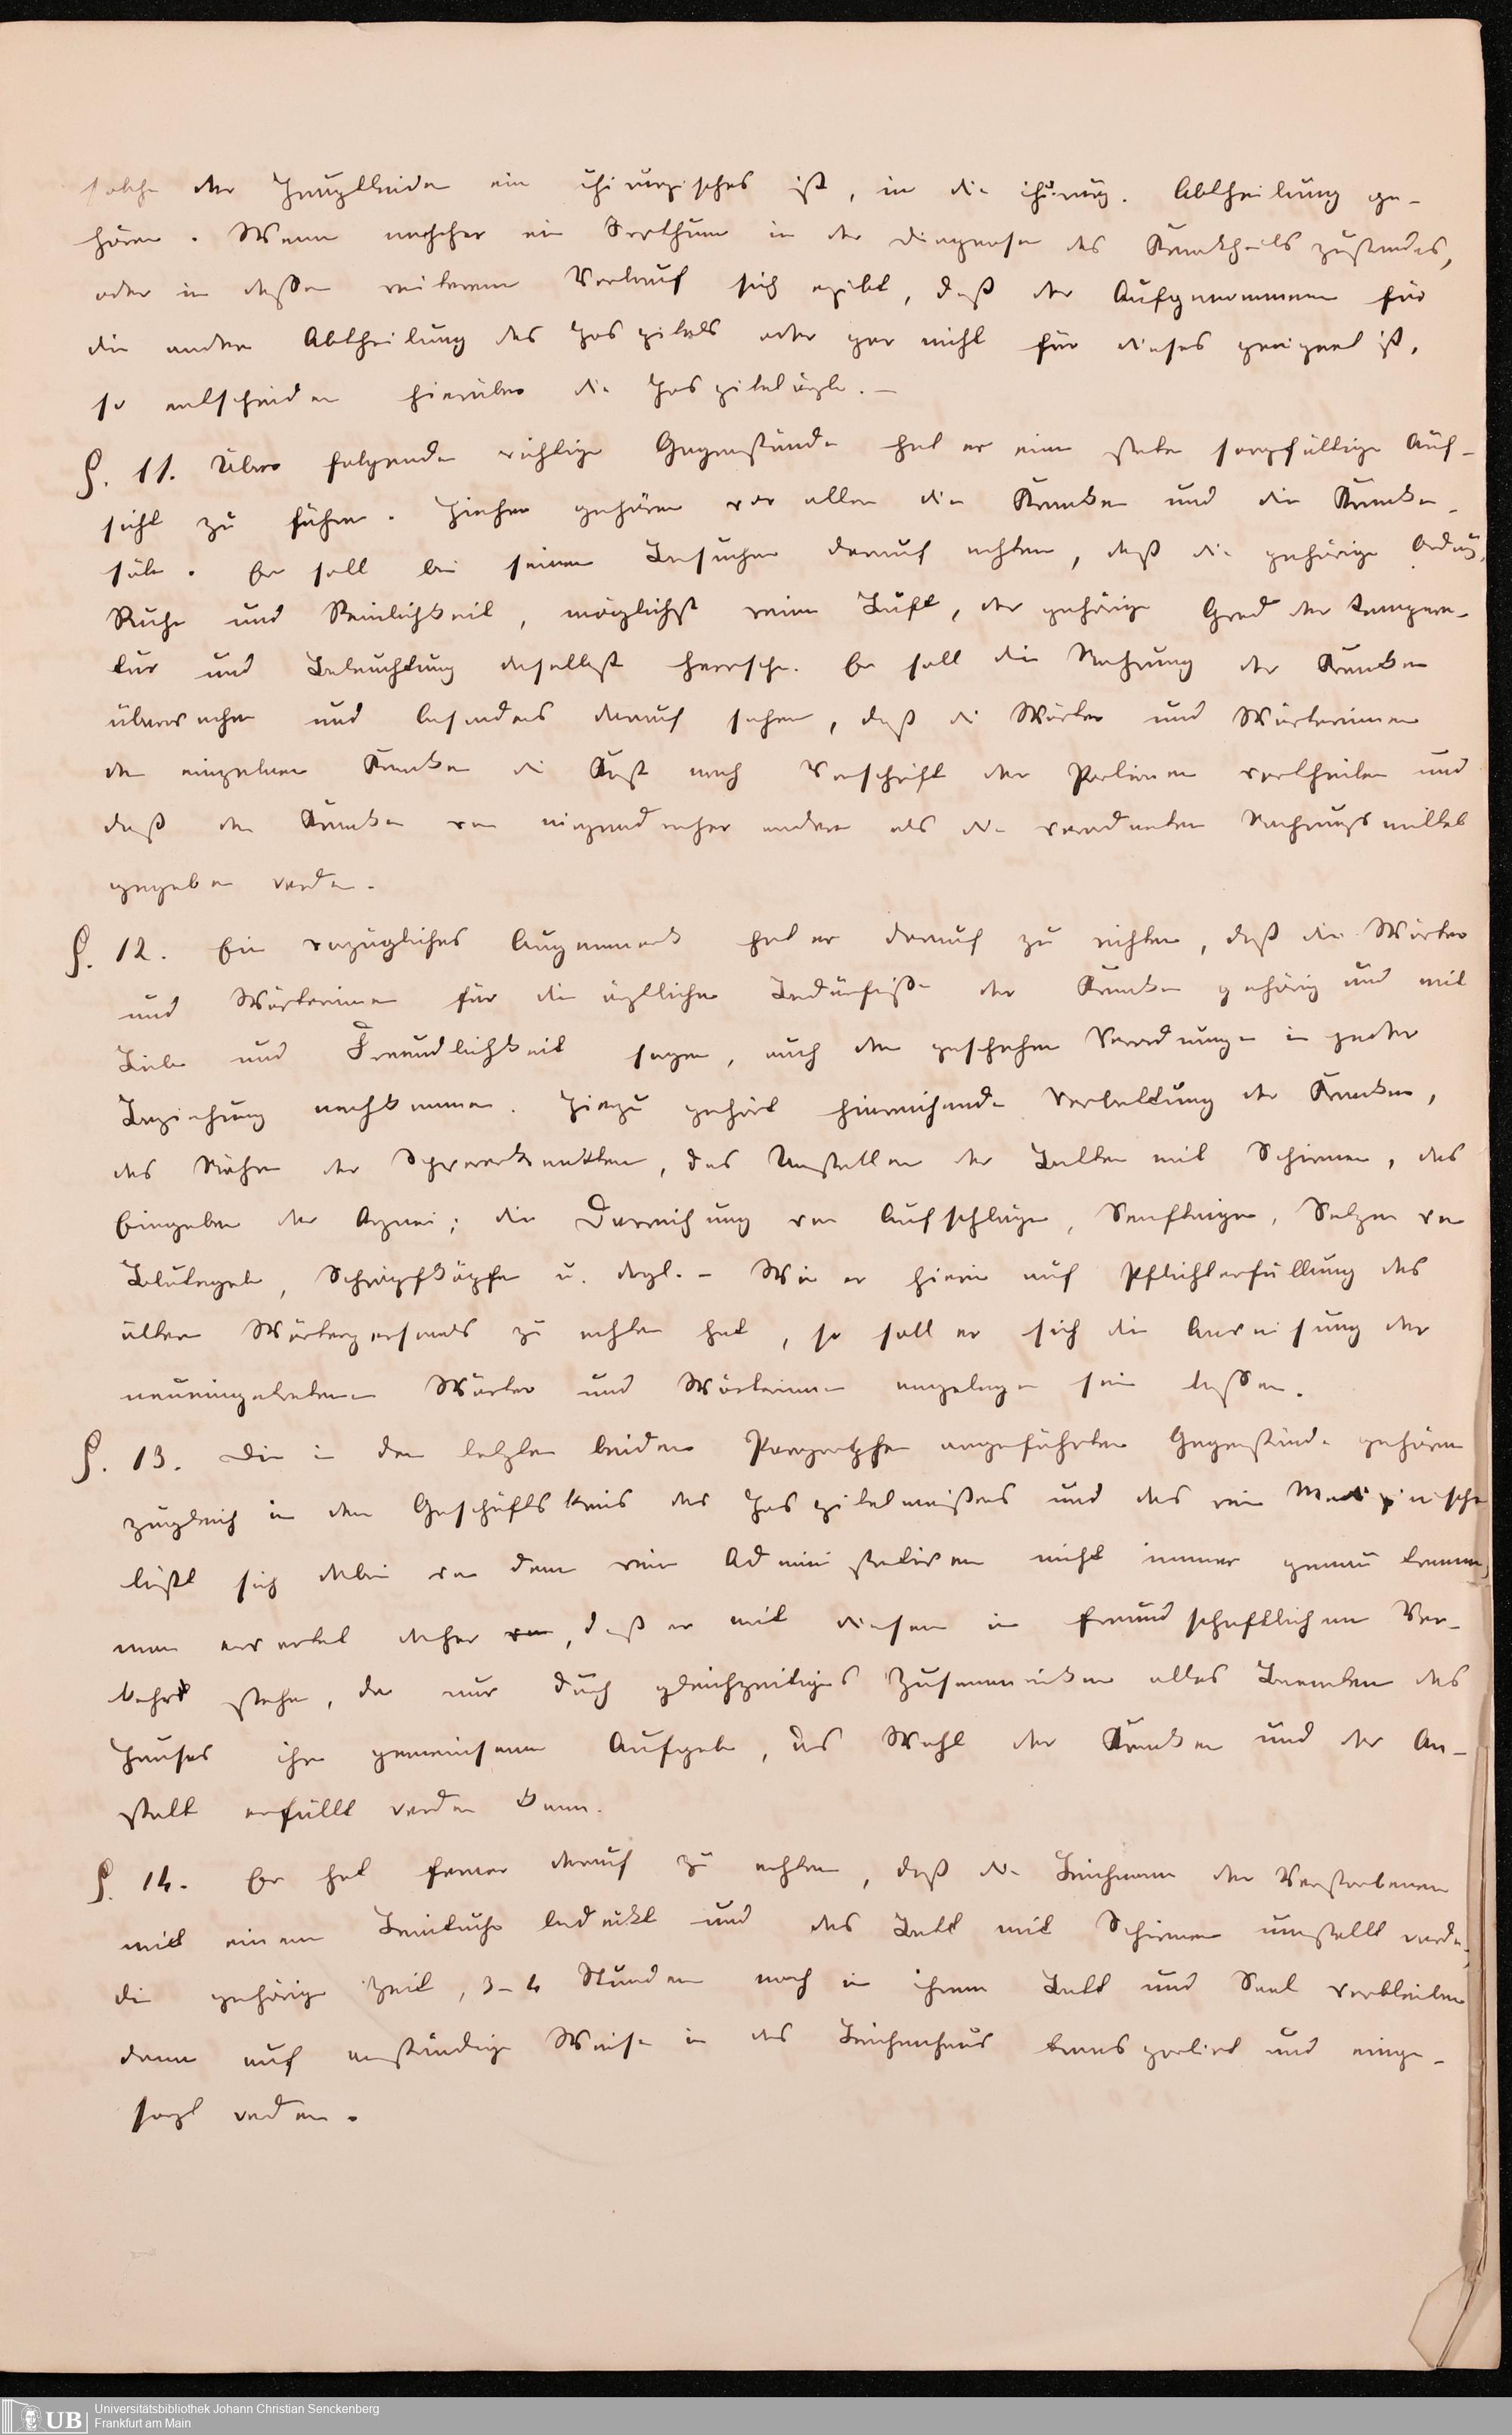 solche der Hauptleiden ein chirurgisches ist, in die chirurg. Abtheilung ge-
hören. Wenn nachher ein Irrthum in der Diagnose des Krankheitszustandes,
oder in deßen weiterem Verlauf sich ergibt, daß der Aufgenommene für
die andere Abtheilung des Hospitals oder gar nicht für dieses geeignet ist,
so entscheiden hierüber die Hospitalärzte. —
§. 11. Über folgende wichtige Gegenstände hat er eine stete sorgfältige Auf-
sicht zu führen. Hieher gehören vor allen die Kranken und die Kranken-
säle. Er soll bei seinen Besuchen darauf achten, daß die gehörige Ordnug,
Ruhe und Reinlichkeit, möglichst reine Luft, der gehörige Grad der Tempera-
tur und Beleuchtung daselbst herrsche. Er soll die Nahrung der Kranken
überwachen und besonders darauf sehen, daß die Wärter und Wärterinnen
den einzelnen Kranken die Kost nach Vorschrift der Portionen vertheilen und
daß den Kranken von nirgend woher andere als die verordneten Nahrungsmittel
gegeben werden.
§. 12. Ein vorzügliches Augenmerk hat er darauf zu richten, daß die Wärter
und Wärterinnen für die ärztlichen Bedürfniße der Kranken gehörig und mit
Liebe und Freundlichkeit sorgen, auch den geschehenen Verordnungen in jeder
Beziehung nachkommen. Hierzu gehört hinreichende Verhaltung der Kranken,
das Nähren der Schwerkranken, das Umstellen der Betten mit Schirmen, das
Eingeben der Arznei; die Darreichung von Aufschlägen, Senfteigen, Setzen von
Blutegeln, Schröpfköpfen u. dergl. – Wie er hierin auf Pflichterfüllung des
ältern Wärterpersonals zu achten hat, so soll er sich die Anweisung der
neueingetretenen Wärter und Wärterinnen angelegen sein laßen.
§. 13. Die in den letzten beiden Paragraphen angeführten Gegenstände gehören
zugleich in den Geschäftskreis des Hospitalmeisters und das rein Medizinische
läßt sich dabei von dem rein Administrativen nicht immer genau trennen,
man erwartet daher, daß er mit diesem in freundschaftlichem Ver-
kehr stehe, da nur durch gleichzeitiges Zusammenwirken aller Beamten des
Hauses ihre gemeinsame Aufgabe, das Wohl der Kranken und der An-
stalt erfüllt werden kann.
§. 14. Er hat ferner darauf zu achten, daß die Leichname der Verstorbenen
mit einem Leintuche bedeckt und das Bett mit Schirmen umstellt werde,
die gehörige Zeit, 3–4 Stunden noch in ihrem Bett und Saal verbleiben
dann auf anständige Weise in das Leichenhaus transportirt und einge-
sargt werden.
Universitätsbibliothek Johann Christian Senckenberg
Frankfurt am Main
UB